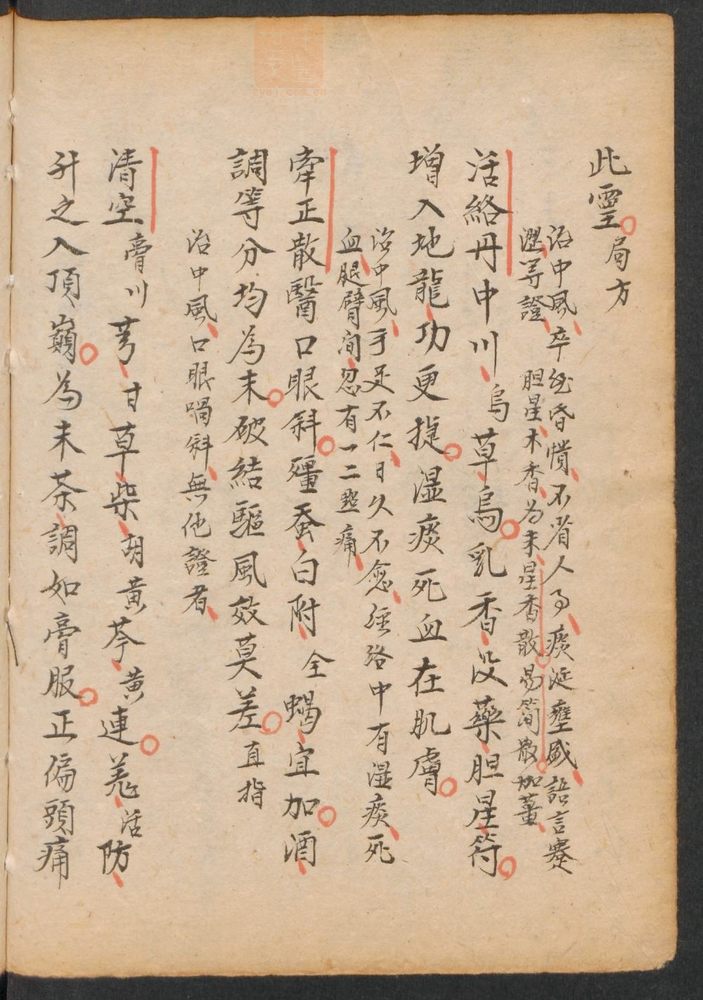 此靈局方
治中風卒然昏憒不省人事痰涎壅盛語言蹇
澀等證　胆星木香為末星香散易簡散加薑
活絡丹中川烏草烏乳香没藥胆星符
增入地龍功更捷湿痰死血在肌膚
治中風手足不仁日久不愈経络中有湿痰死
血腿臂间忽有一二點痛
牽正散醫口眼斜殭蚕白附全蝎宜加酒
調等分均為末破結驅風效莫差直指
治中風口眼喎斜無他證者
清空膏川芎甘草柴胡黄芩黄連羗活防
升之入頂巔為末茶調如膏服正偏頭痛